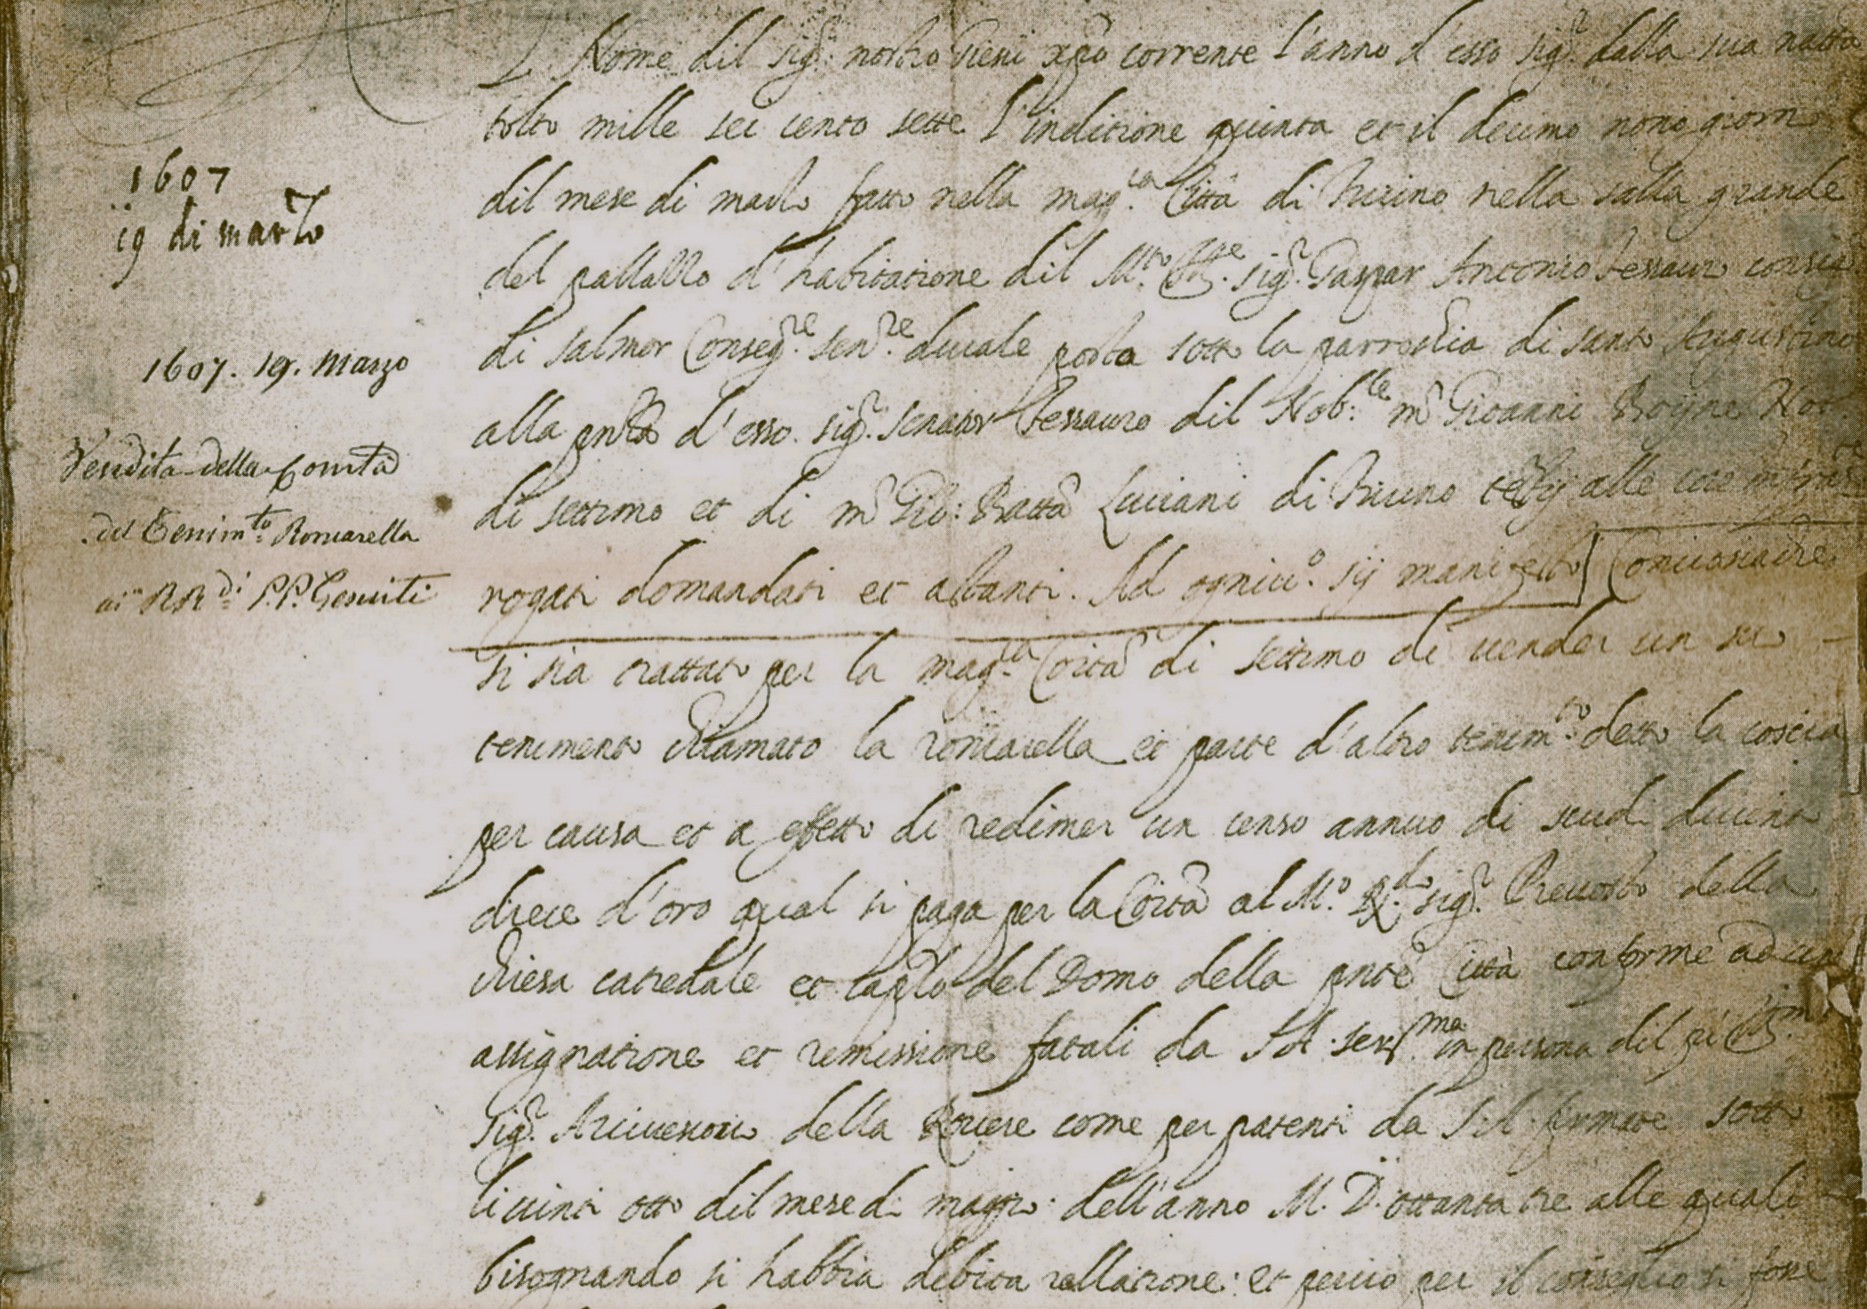 1607
19 di marzo
1607. 19. Marzo
Vendita della Comtà
del Tenim.to Romarella
ai RR.di P.P. Gesuiti
Nome dil sig.r nostro Giesu xpo corrente l'anno d'esso sig.r dalla sua
mille sei cento sette l'inditione quinta et il decimo nono giorno
dil mese di marzo fatto nella mag.ca Città di Turino nella salla grande
del pallazzo d'habitatione dil M.to Ill.re sig.r Gaspar Antonio Tessauro
di Salmor Conseg.re sen.re ducale posta sotto la parrochia di santo Augustino
alla pnza d'esso sig.r senator Tessauro dil Nob.le m.r Gioanni
di settimo et di m.r Gio: Batta Luciani di Turino testij alle cose
rogati domandati et astanti. Ad ogniu.o sij manifesto Conciosiache
si sia trattato per la mag.ca Coità di settimo di vender un suo
tenimento chiamato la romarella et parte d'altro tenim.to detto la coscia
per causa et a effetto di redimer un censo annuo di scudi ducento
diece d'oro qual si paga per la Coità al M.o R.do sig.r Prevosto della
chiesa catredale et caplo del Domo della pnte Città conforme ad un
assignatione et remissione fatali da S.A. ser.ma in persona dil
sig.r Arcivescovo della Rovere come per patenti da S.A. firmate sotto
li vinti otto dil mese di maggio dell'anno M.D. ottanta tre alle quali
bisognando si habbia debita rellatione: et perciò per il conseglio si fosse